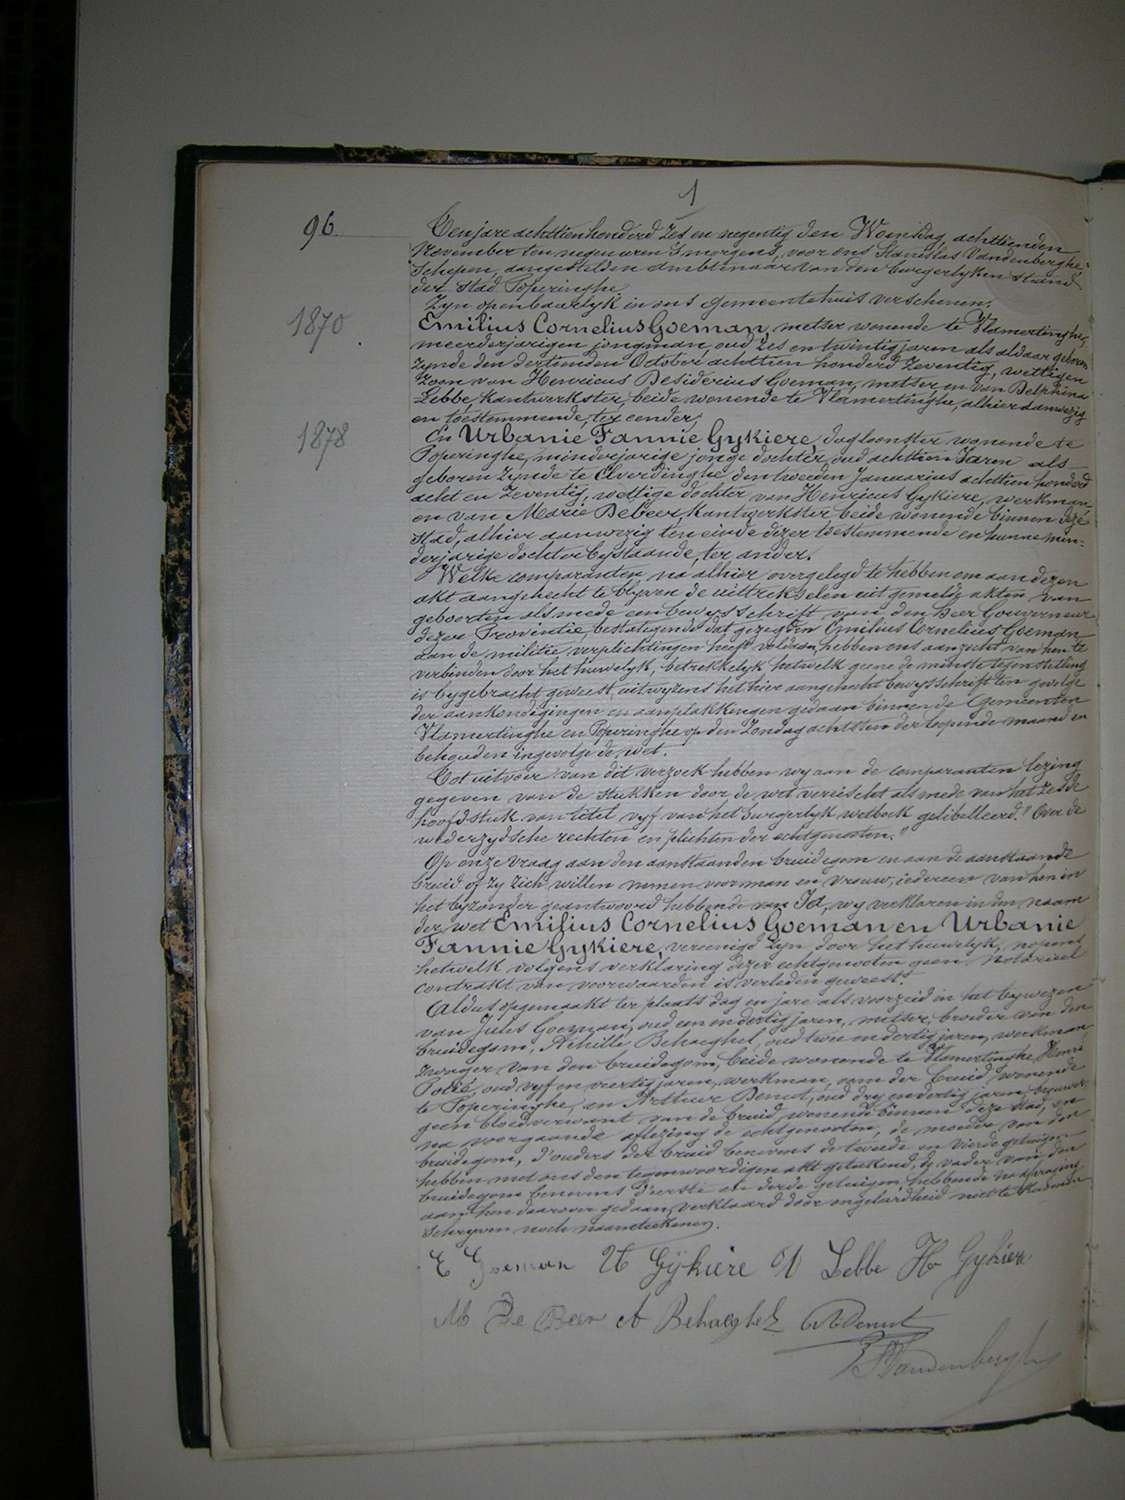 1
96
Ten jare achttien honderd zes en negentig den Woensdag, achttienden
November ten negen uren 's morgens, voor ons Stanislas Vandenberghe,
Schepen, aangestelden ambtenaar van den burgerlyken stand
der stad Poperinghe
Zyn openbaarlyk in ons gemeentehuis verschenen.
1870
Emilius Cornelius Goeman, metser wonende te Vlamertinghe,
meerderjarigen jongman, oud zes en twintig jaren als aldaar geboren
zynde den dertienden October achttien honderd zeventig, wettigen
zoon van Henricus Desiderius Goeman, metser en van Delphina
Lebbe, kantwerkster, beide wonende te Vlamertinghe, alhier aanwezig
en toestemmende, ter eender,
1878
En Urbanie Fannie Gykiere, dagloonster wonende te
Poperinghe, minderjarige jonge dochter, oud achttien Jaren als
geboren zynde te Elverdinghe den tweeden Januarius achttien honderd
acht en zeventig, wettige dochter van Henricus Gykiere, werkman
en van Marie Debeer kantwerkster beide wonende binnen deze
stad, alhier aanwezig ten einde dezer toestemmende en hunne min-
derjarige dochter bystaande, ter ander.
Welke comparanten, na alhier overgelegd te hebben om aan dezen
akt aangehecht te blyven de uittrekselen uit gemelde akten van
geboorten als mede een bewysschrift van den Heer Gouverneur
dezer Provintie, bestatigende dat gezegden Emilius Cornelius Goeman
aan de militie verplichtingen heeft voldaan, hebben ons aanzocht van hen te
verbinden door het huwelyk, betrekkelyk hetwelk geene de minste tegenstelling
is bygebracht geweest, uitwyzens het hier aangehecht bewysschrift ten gevolge
der aankondigingen en aanplakkingen gedaan binnen de Gemeenten
Vlamertinghe en Poperinghe op den Zondag achtsten der loopende maand en
behouden ingevolge de wet.
Tot uitvoer van dit verzoek hebben wy aan de comparanten lezing
gegeven van de stukken door de wet vereischt als mede van het zesde
hoofdstuk van titel vyf van het burgerlyk wetboek gelibelleerd "Over de
wederzydsche rechten en plichten der echtgenooten."
Op onze vraag aan den aanstaanden bruidegom en aan de aanstaande
bruid of zy zich willen nemen voor man en vrouw, iedereen van hen in
het byzonder geantwoord hebbende van Ja, wy verklaren in den naam
der wet Emilius Cornelius Goeman en Urbanie
Fannie Gykiere, vereenigd zyn door het huwelyk, nopens
hetwelk volgens verklaring dezer echtgenooten geen notarieel
contrakt van voorwaarden is verleden geweest.
Aldus opgemaakt ter plaats dag en jare als voorzeid in het bywezen
van Jules Goeman, oud een en dertig jaren, metser, broeder van den
bruidegom, Achille Behaeghel, oud twee en dertig jaren, werkman,
zwager van den bruidegom, beide wonende te Vlamertinghe, Henri
oud vyf en veertig jaren, werkman, van der bruid, wonende
te Poperinghe, en Arthur Denut, oud dry en dertig jaren,
geen bloedverwant van de bruid, wonende binnen deze stad, en
na voorgaande aflezing de echtgenooten, de moeder van den
bruidegom, d'ouders der bruid benevens de tweede en vierde getuigen
hebben met ons den tegenwoordigen akt geteekend, de vader van den
bruidegom benevens d'eerste en derde getuigen, hebbende na afvraging
aan hen daarover gedaan, verklaard door ongeleerdheid niet te kunnen
schryven noch naamteekenen.
E Goeman U Gÿkiere D Lebbe H Gykiere
M De Beer A Behaeghel A Denut
S Vandenberghe